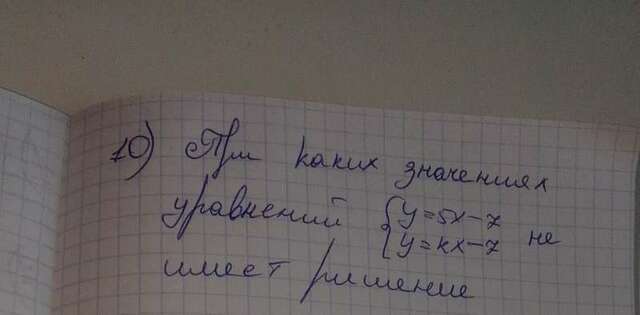 10) При каких значениях
уравнений { y=5x-7
y=kx-7 не
имеет ришение